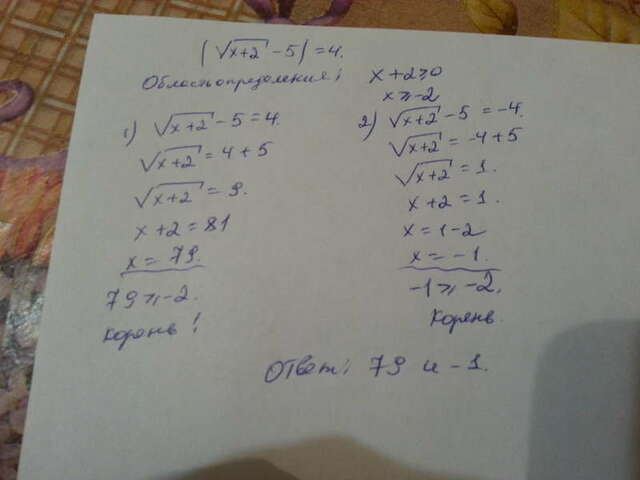 |√x+2 - 5| = 4.
Область определения: x + 2 ≥ 0
x ≥ -2
1) √x+2 - 5 = 4.
√x+2 = 4 + 5
√x+2 = 9.
x + 2 = 81
x = 79.
79 ≥ -2.
корень!
2) √x+2 - 5 = -4.
√x+2 = -4 + 5
√x+2 = 1.
x + 2 = 1.
x = 1 - 2
x = -1.
-1 ≥ -2.
Корень.
Ответ: 79 и -1.